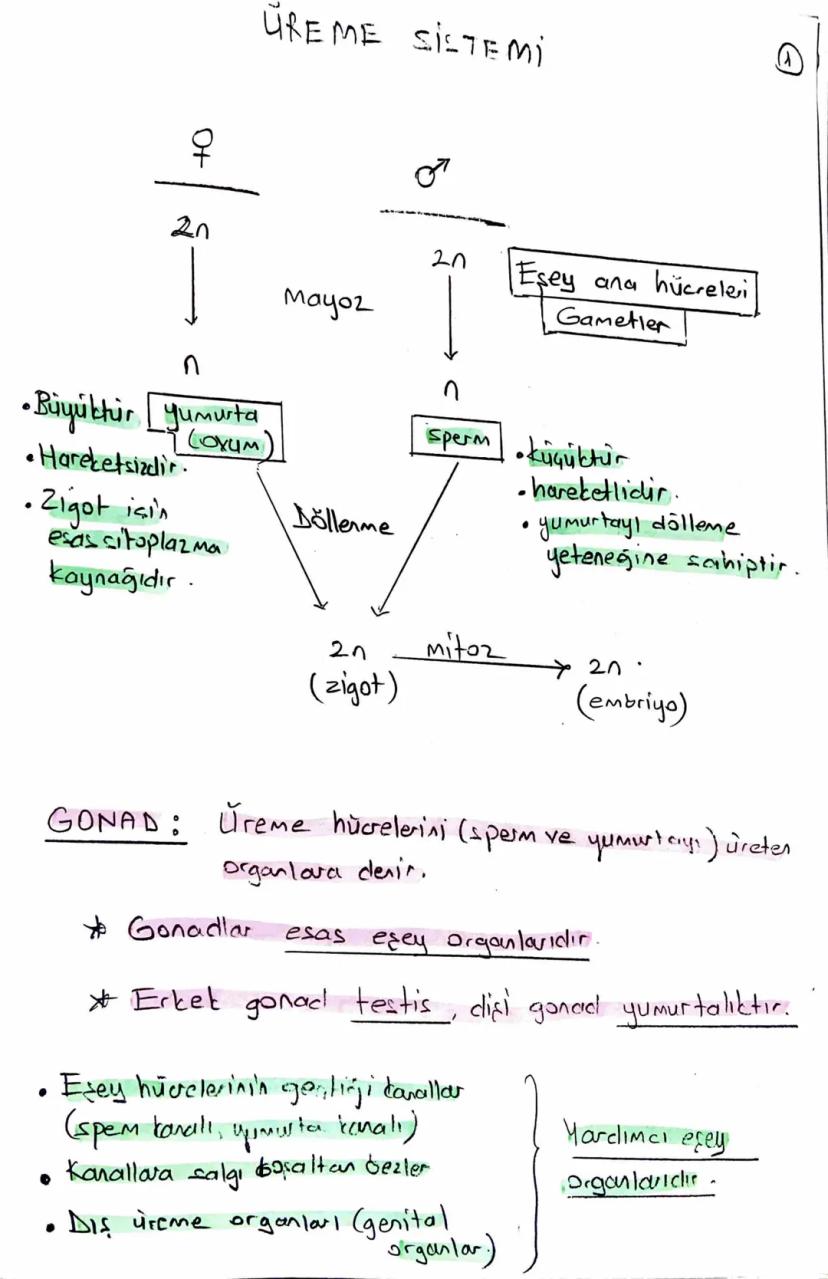 ÜREME SİSTEMİ
1
♀
♂
2n
2n
Eşey ana hücreleri
Mayoz
Gametler
n
n
• Büyüktür
yumurta
(ovum)
sperm
• küçüktür
• Hareketsizdir.
• hareketlidir.
• Zigot için
esas sitoplazma
kaynağıdır.
Döllenme
• yumurtayı dölleme
yeteneğine sahiptir.
2n
mitoz
2n
(zigot)
(embriyo)
GONAD: Üreme hücrelerini (sperm ve yumurtayı) üreten
organlara denir.
* Gonadlar esas eşey organlarıdır.
* Erkek gonad testis, dişi gonad yumurtalıktır.
• Eşey hücrelerinin geçtiği kanallar
(spem kanalı, yumurta kanalı)
• Kanallara salgı boşaltan bezler
• Dış üreme organları (genital
organlar.)
Yardımcı eşey
organlarıdır.